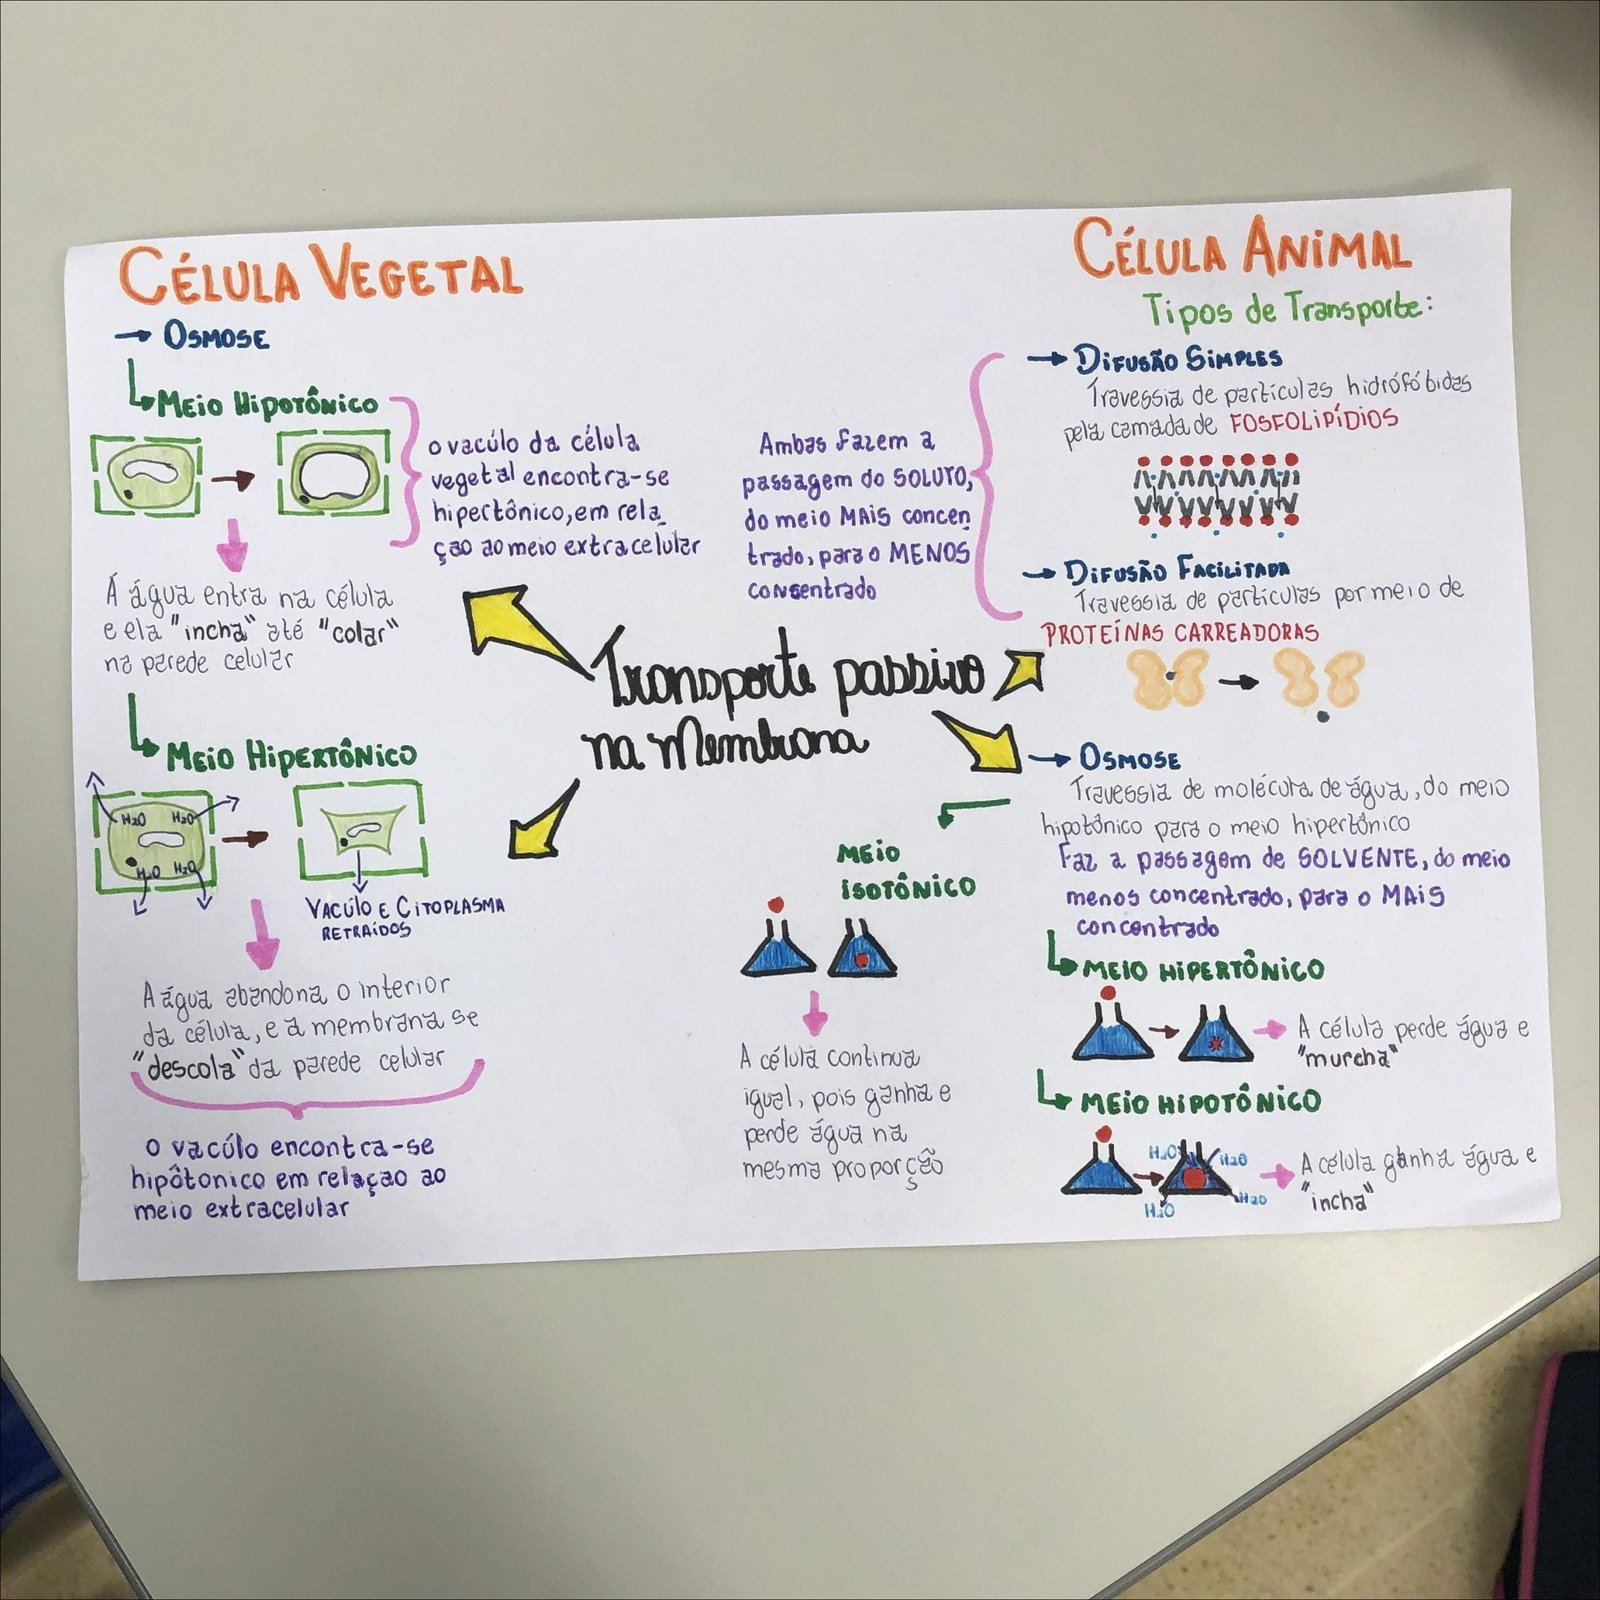 CÉLULA VEGETAL
→ OSMOSE
MEIO HIPOTÔNICO
o vacúlo da célula
vegetal encontra-se
hipertônico, em rela_
ção ao meio extracelular
A água entra na célula
e ela "incha" até "colar"
na parede celular
MEIO HIPERTÔNICO
H2O H2O
H2O H2O
VACÚLO E CITOPLASMA
RETRAÍDOS
A água abandona o interior
da célula, e a membrana se
"descola" da parede celular
O vacúlo encontra-se
hipôtonico em relaçao ao
meio extracelular
Transporte passivo
na Membrana
CÉLULA ANIMAL
Tipos de Transporte:
→ DIFUSÃO SIMPLES
Travessia de partículas hidrófóbidas
pela camada de FOSFOLIPÍDIOS
Ambas fazem a
passagem do SOLUTO,
do meio MAIS concen_
trado, para o MENOS
concentrado
→ DIFUSÃO FACILITADA
Travessia de partículas por meio de
PROTEÍNAS CARREADORAS
→ OSMOSE
Travessia de molécuta de água, do meio
hipotônico para o meio hipertônico
Faz a passagem de SOLVENTE, do meio
menos concentrado, para o MAIS
concentrado
MEIO
ISOTÔNICO
A célula continua
igual, pois ganha e
perde água na
mesma proporção
MEIO HIPERTÔNICO
A célula perde água e
"murcha"
MEIO HIPOTÔNICO
H2O H2O
H2O H2O
A célula ganha água e
"incha"